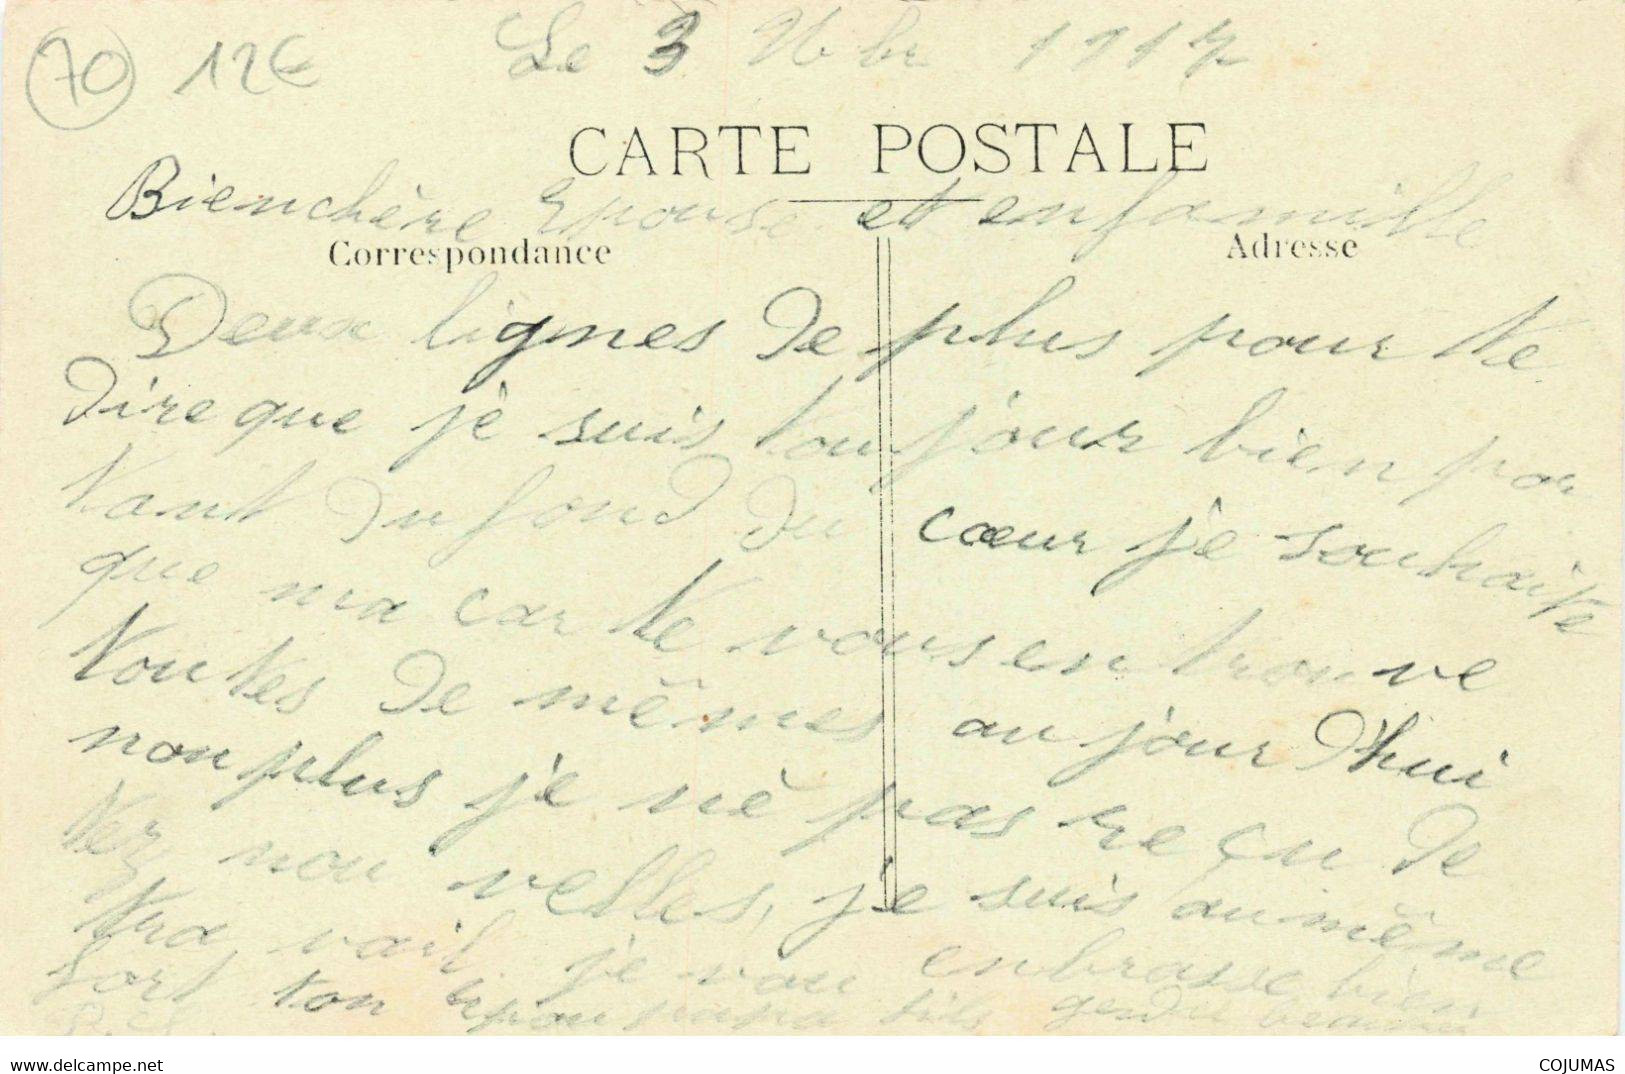 70 12€ Le 3 9bre 1917
CARTE POSTALE
Bienchère Epouse et enfamille
Correspondance Adresse
Deux lignes de plus pour te
dire que je suis toujour bien por
tant du fond du cœur je souhaite
que ma carte vous en trouve
toutes de mêmes au jour d'hui
non plus je né pas reçu de
tez nou velles, je suis au même
tra vail je vou enbrasse bien
fort ton Epou papa fils gendre beau
COJUMAS
www.delcampe.net